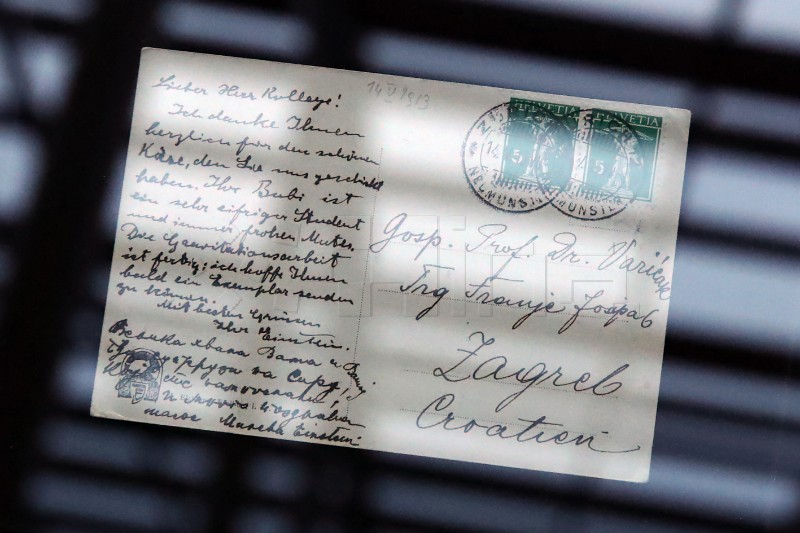 Lieber Herr Kollege!
Ich danke Ihnen
herzlich für den schönen
Käse, den Sie uns geschickt
haben. Ihr Bubi ist
ein sehr eifriger Student
und immer frohen Mutes.
Die Gravitationsarbeit
ist fertig; ich hoffe Ihnen
bald ein Exemplar senden
zu können.
Mit besten Grüssen
Ihr Einstein.
Велика хвала Вама и
за сиру,
Марића Einstein
14 V 1913
HELVETIA
HELVETIA
5
5
Gosp. Prof. Dr. Varićak
Trg Franje Josipa 6
Zagreb
Croatien